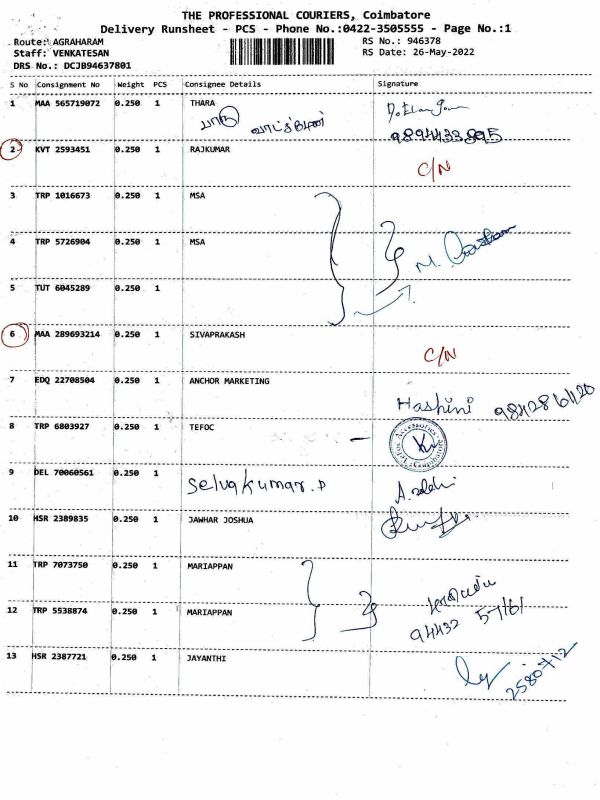 THE PROFESSIONAL COURIERS, Coimbatore
Delivery Runsheet - PCS - Phone No.:0422-3505555 - Page No.:1
Route: AGRAHARAM
RS No.: 946378
Staff: VENKATESAN
RS Date: 26-May-2022
DRS No.: DCJB94637801
S No Consignment No Weight PCS Consignee Details Signature
1 MAA 565719072 0.250 1 THARA
9894433895
2 KVT 2593451 0.250 1 RAJKUMAR
C/N
3 TRP 1016673 0.250 1 MSA
4 TRP 5726904 0.250 1 MSA
M.
5 TUT 6045289 0.250 1
6 MAA 289693214 0.250 1 SIVAPRAKASH
C/N
7 EDQ 22708504 0.250 1 ANCHOR MARKETING
Hashini
8 TRP 6803927 0.250 1 TEFOC
9 DEL 70060561 0.250 1 Selvakumar.P
10 HSR 2389835 0.250 1 JAWHAR JOSHUA
11 TRP 7073750 0.250 1 MARIAPPAN
12 TRP 5538874 0.250 1 MARIAPPAN
94432 57161
13 HSR 2387721 0.250 1 JAYANTHI